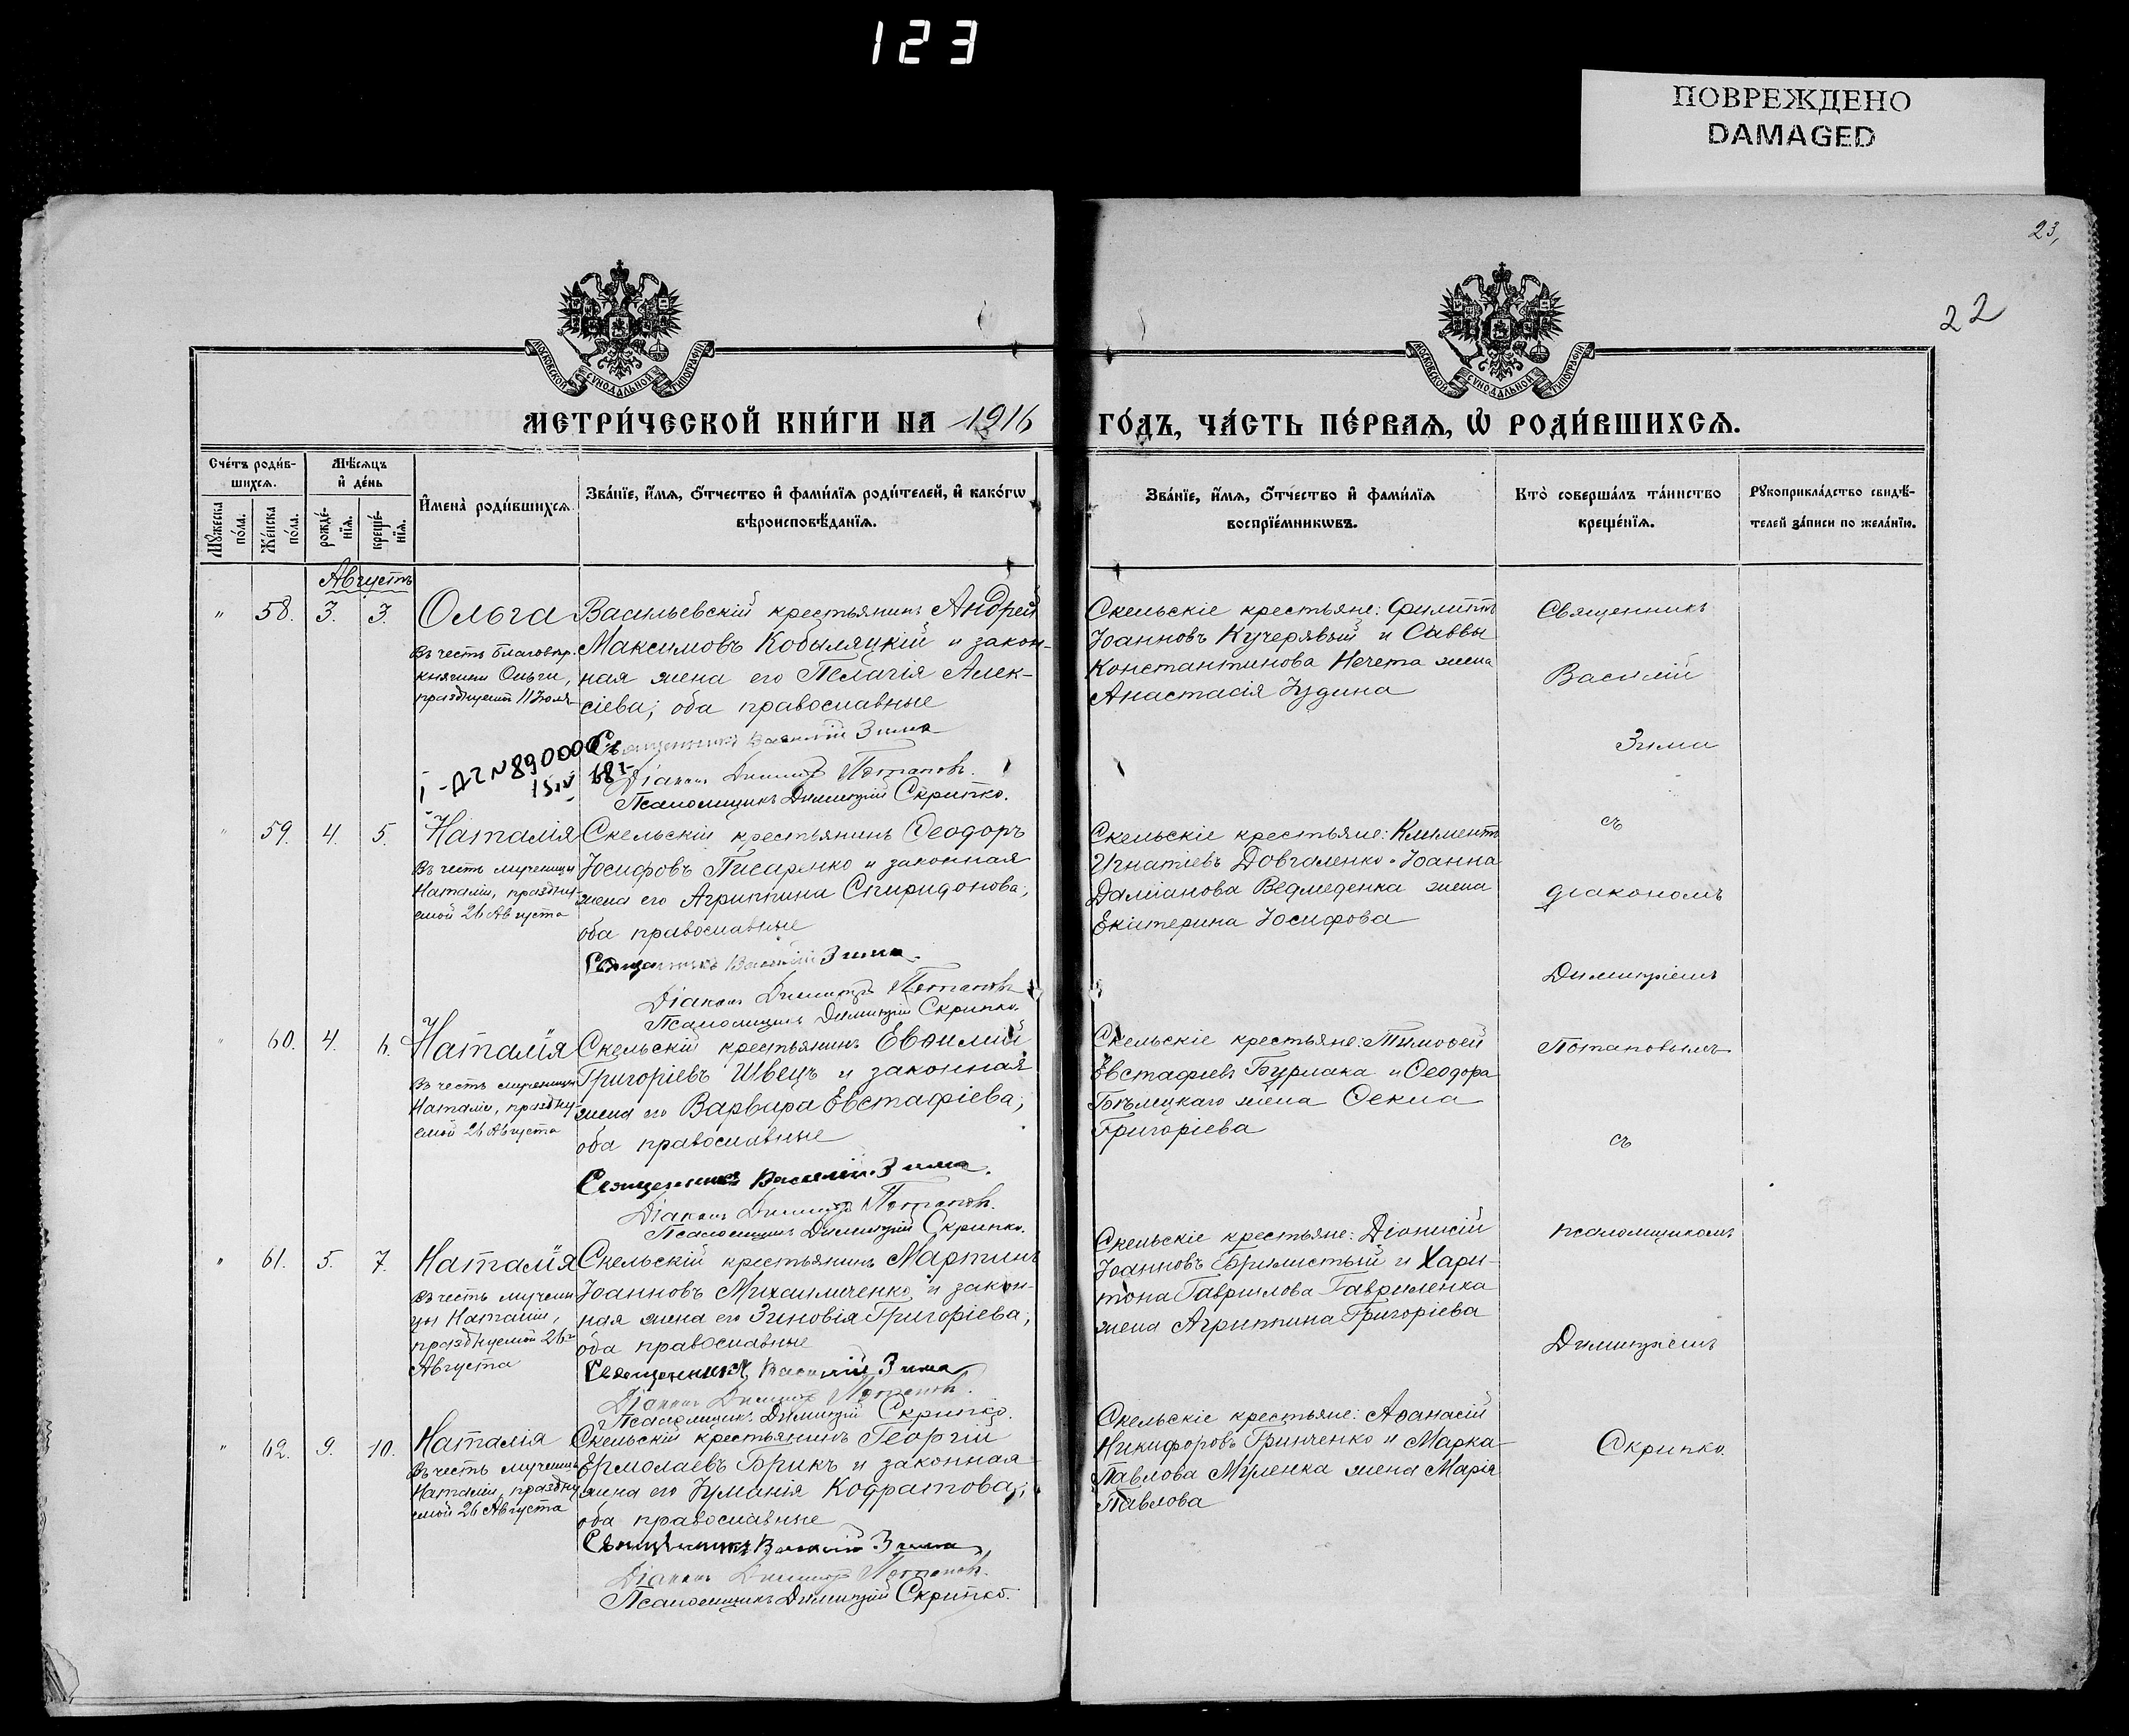 123
ПОВРЕЖДЕНО
DAMAGED
23,
22
МОСКОВСКОЙ СѴНОДАЛЬНОЙ ТИПОГРАФІИ
МОСКОВСКОЙ СѴНОДАЛЬНОЙ ТИПОГРАФІИ
МЕТРИ́ЧЕСКОЙ КНИ́ГИ НА 1916
ГО́ДЪ, ЧА́СТЬ ПЕ́РВАѦ, Ѡ҆ РОДИ́ВШИХСѦ.
Сче́тъ роди́в-
шихсѧ.
Мѣ́сѧцъ
и҆ де́нь
Мꙋ́жеска
по́ла.
Же́нска
по́ла.
рожде́-
нїѧ.
креще́-
нїѧ.
И҆мена̀ роди́вшихсѧ
Зва́нїе, и҆́мѧ, ѻ҆́тчество и҆ фами́лїѧ роди́телей, и҆ како́гѡ
вѣроисповѣ́данїѧ.
Зва́нїе, и҆́мѧ, ѻ҆́тчество и҆ фами́лїѧ
воспрїе́мникѡвъ.
Кто̀ соверша́лъ та́инство
креще́нїѧ.
Рꙋкоприкла́дство свидѣ́-
телей за́писи по жела́нїю.
Августъ
" 58. 3. 3. Ольга
Въ честь благовѣр.
княгини Ольги,
празднуемой 11 Іюля
Васильевскій крестьянинъ Андрей
Максимовъ Кобыляцкій и закон-
ная жена его Пелагія Алек-
сіева; оба православные
Священникъ Василій Зима
Діаконъ Димитр Потаповъ.
Псаломщикъ Димитрій Скрипко.
Скельскіе крестьяне: Филиппъ
Іоанновъ Кучерявый и Саввы
Константинова Нечета жена
Анастасія Іудина
Священникъ
Василій
Зима
съ
діакономъ
Димитріемъ
Потаповымъ
съ
псаломщикомъ
Димитріемъ
Скрипко
" 59. 4. 5. Наталія
Въ честь мученицы
Наталіи, праздну-
емой 26 Августа
Скельскій крестьянинъ Ѳеодоръ
Іосифовъ Писаренко и законная
жена его Агриппина Спиридонова,
оба православные
Священникъ Василій Зима.
Діаконъ Димитр Потаповъ
Псаломщикъ Димитрій Скрипко.
Скельскіе крестьяне: Климентъ
Игнатіевъ Довгаленко и Іоанна
Даміанова Ведмеденка жена
Екатерина Іосифова
" 60. 4. 6. Наталія
Въ честь мученицы
Наталіи, праздну-
емой 26 Августа
Скельскій крестьянинъ Евѳимій
Григоріевъ Швецъ и законная
жена его Варвара Евстафіева;
оба православные
Священникъ Василій Зима.
Діаконъ Димитр Потаповъ.
Псаломщикъ Димитрій Скрипко.
Скельскіе крестьяне: Тимоѳей
Евстафіевъ Бурлака и Ѳеодора
Бѣлецкаго жена Ѳекла
Григоріева
" 61. 5. 7. Наталія
Въ честь мучени
цы Наталіи,
празднуемой 26го
Августа
Скельскій крестьянинъ Мартинъ
Іоанновъ Михайличенко и закон-
ная жена его Зиновія Григоріева;
оба православные
Священникъ Василій Зима
Діаконъ Димитр Потаповъ.
Псаломщикъ Димитрій Скрипко.
Скельскіе крестьяне: Діонисій
Іоанновъ Брилистый и Хари-
тона Гаврилова Гавриленка
жена Агриппина Григоріева
" 62. 9. 10. Наталія
Въ честь мученицы
Наталіи, праздну
емой 26 Августа
Скельскій крестьянинъ Георгій
Ермолаевъ Брикъ и законная
жена его Іуліанія Кодратова;
оба православные
Священникъ Василій Зима
Діаконъ Димитр Потаповъ.
Псаломщикъ Димитрій Скрипко.
Скельскіе крестьяне: Аѳанасій
Никифоровъ Гринченко и Марка
Павлова Муленка жена Марія
Павлова